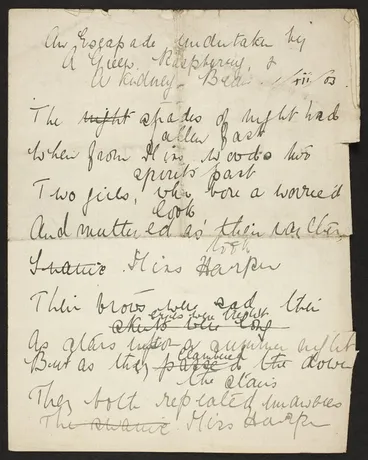 An Escapade undertaken by
A Green Raspberry, &
A Kidney Bean. /xii/03
The night shades of night had
fallen fast
When from Miss Woods two
spirits past
Two girls, who bore a worried
look
And muttered as their way they
took
Miss Harper
Their brows were sad their
eyes were bright
skirts were long
As stars upon a summer night
But as they passed clambered the down
the stairs
They both repeated unawares
The Miss Harper